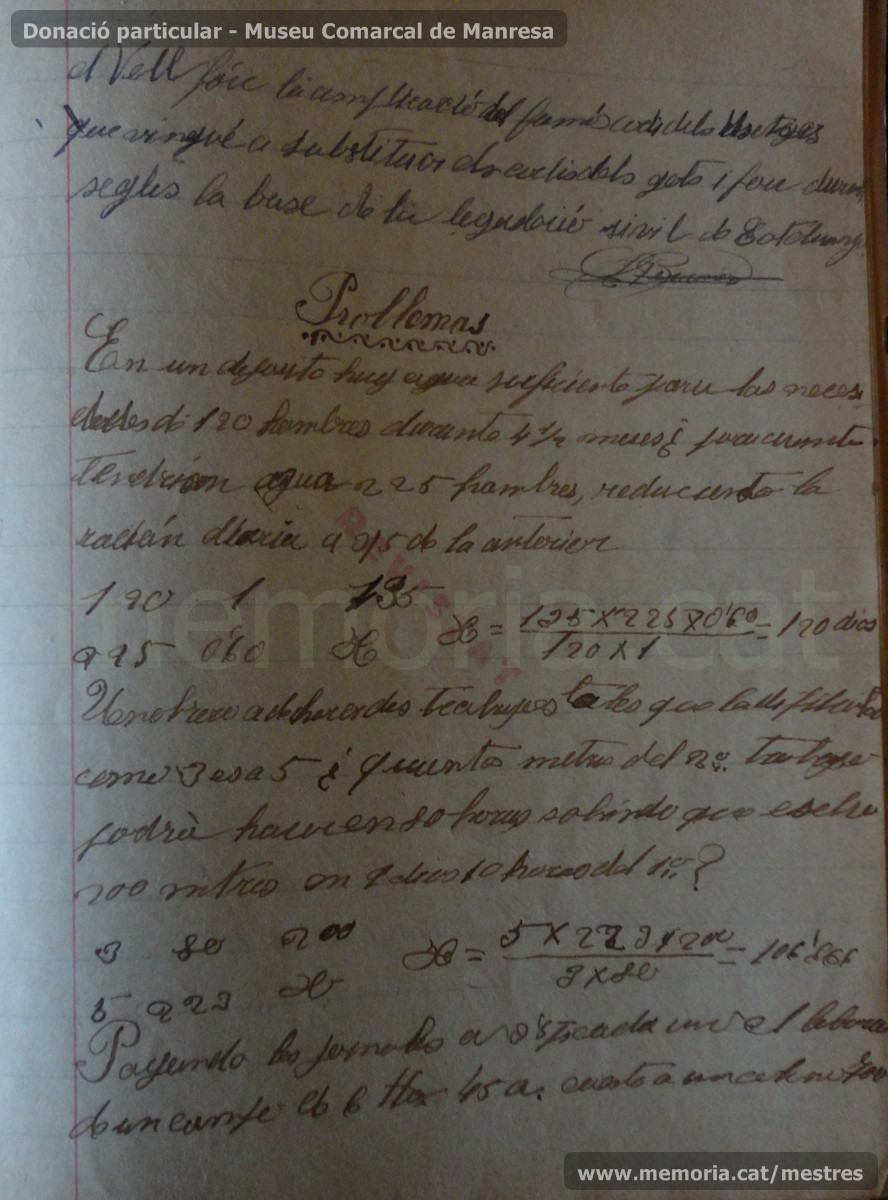 Donació particular - Museu Comarcal de Manresa
el Vell fou la amplicació del famós codi dels Usatges
que vingué a substituir els codis dels gots i fou duran
segles la base de la legadació sivil de Catalunya
Problemas
En un deposito hay agua suficiente para las neces
idades de 120 hombres durante 4 1/2 meses ¿ para cuanto
tendrian agua 225 hombres, reduciendo la
ración diaria a 3/5 de la anterior
120 1 135
225 0'60 X X = 135 X 225 X 0'60 / 120 X 1 = 120 dias
Un obrero a de hacer dos trabajos tales que la dificultad
como 3 es a 5 ¿ quanto metros del 2º. trabajo
podrà hacer en 80 horas sabiendo que
200 metros en 10 horas del 1º. ?
3 80 200
5 223 X X = 5 X 223 X 200 / 3 X 80 = 106'866
Pagando los jornales a cada uno el labora
de un campo de 6 Ha 45 a. cuanto
memoria.cat
www.memoria.cat/mestres